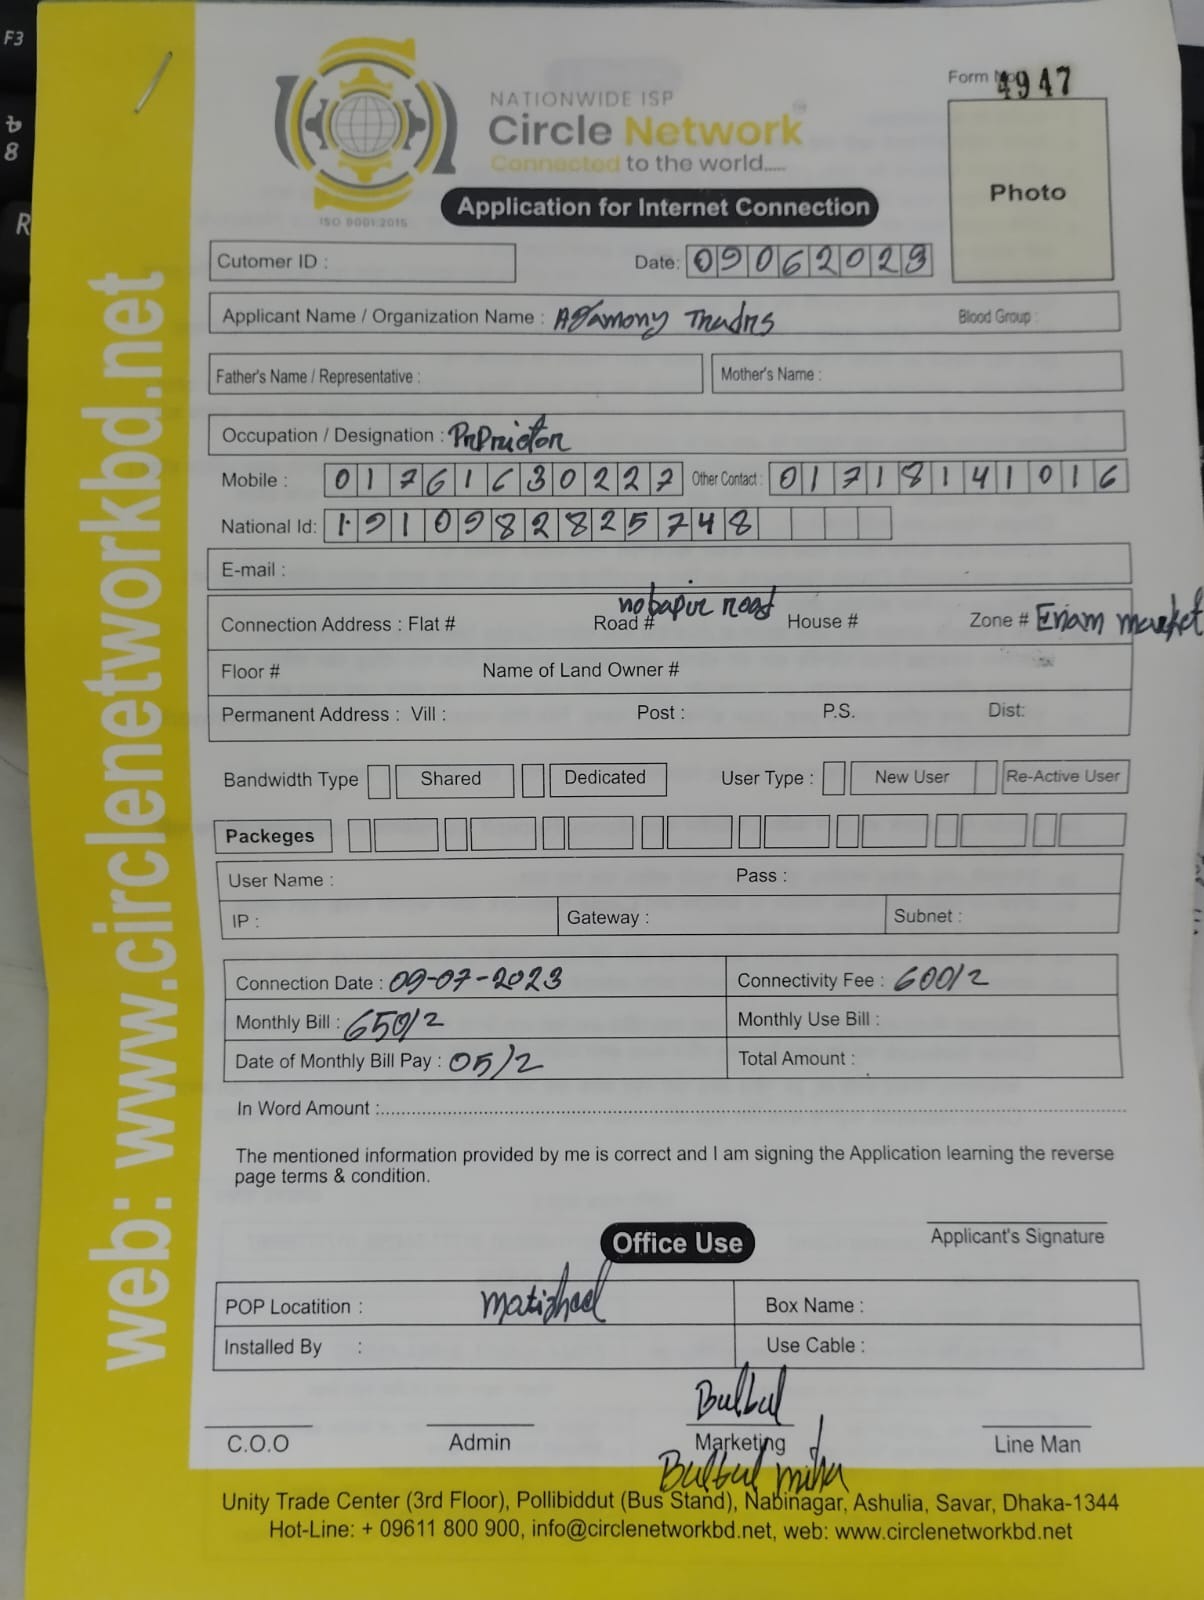 F3
8
R
Form No.
4947
NATIONWIDE ISP
Circle Network
Connected to the world.....
ISO 9001:2015
Application for Internet Connection
Photo
Cutomer ID :
Date: 09062023
Applicant Name / Organization Name : Agamony Tradrs
Blood Group :
Father's Name / Representative :
Mother's Name :
Occupation / Designation :
Mobile : 01761630227 Other Contact : 01718141016
National Id: 1910982825748
E-mail :
Connection Address : Flat # Road # nobapur road House # Zone # Enam market
Floor # Name of Land Owner #
Permanent Address : Vill : Post : P.S. Dist:
Bandwidth Type Shared Dedicated User Type : New User Re-Active User
Packeges
User Name : Pass :
IP : Gateway : Subnet :
Connection Date : 09-07-2023 Connectivity Fee : 600/2
Monthly Bill : 650/2 Monthly Use Bill :
Date of Monthly Bill Pay : 05/2 Total Amount :
In Word Amount :
The mentioned information provided by me is correct and I am signing the Application learning the reverse
page terms & condition.
Applicant's Signature
Office Use
POP Locatition : matizheel Box Name :
Installed By : Use Cable :
Bulbul
C.O.O Admin Marketing Line Man
Bulbul miha
Unity Trade Center (3rd Floor), Pollibiddut (Bus Stand), Nabinagar, Ashulia, Savar, Dhaka-1344
Hot-Line: + 09611 800 900, info@circlenetworkbd.net, web: www.circlenetworkbd.net
web: www.circlenetworkbd.net